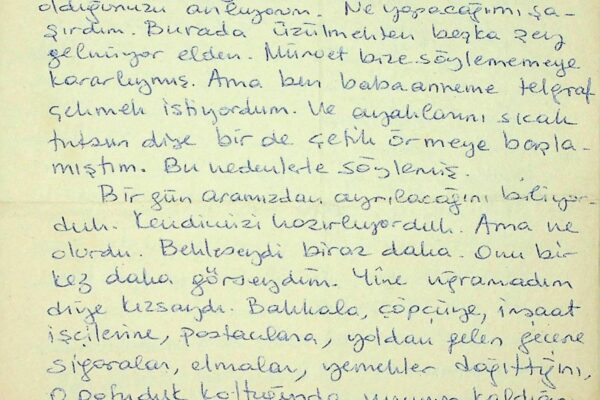 olduğunuzu anlıyorum. Ne yapacağımı şa-
şırdım. Burada üzülmekten başka şey
gelmiyor elden. Mürvet bize söylememeye
kararlıymış. Ama ben babaanneme telgraf
çekmek istiyordum. Ve ayaklarını sıcak
tutsun diye bir de çetik örmeye başla-
mıştım. Bu nedenlerle söylemiş.
Bir gün aramızdan ayrılacağını biliyor-
duk. Kendimizi hazırlıyorduk. Ama ne
olurdu. Bekleseydi biraz daha. Onu bir
kez daha görseydim. Yine uğramadın
diye kızsaydı. Bakkala, çöpçüye, inşaat
işçilerine, postacılara, yoldan gelen geçene
sigaralar, elmalar, yemekler dağıttığını,
O pofuduk koltuğunda